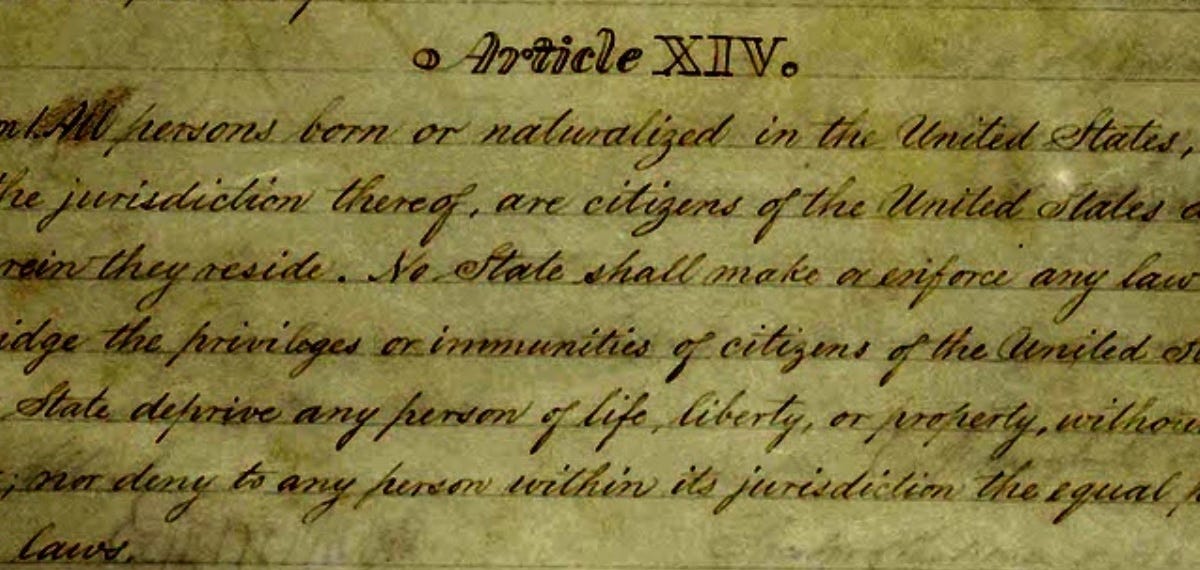 Article XIV.
n 1. All persons born or naturalized in the United States,
the jurisdiction thereof, are citizens of the United States
rein they reside. No State shall make or enforce any law
idge the privileges or immunities of citizens of the United
State deprive any person of life, liberty, or property, withou
; nor deny to any person within its jurisdiction the equal
laws.